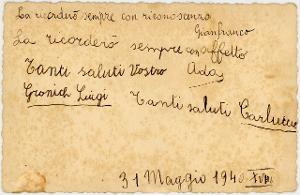 La ricorderò sempre con riconoscenza
Gianfranco
La ricorderò sempre con affetto
Ada
Tanti saluti Vostro
Gronich Luigi
Tanti saluti Carluccio
31 Maggio 1940 XVIII